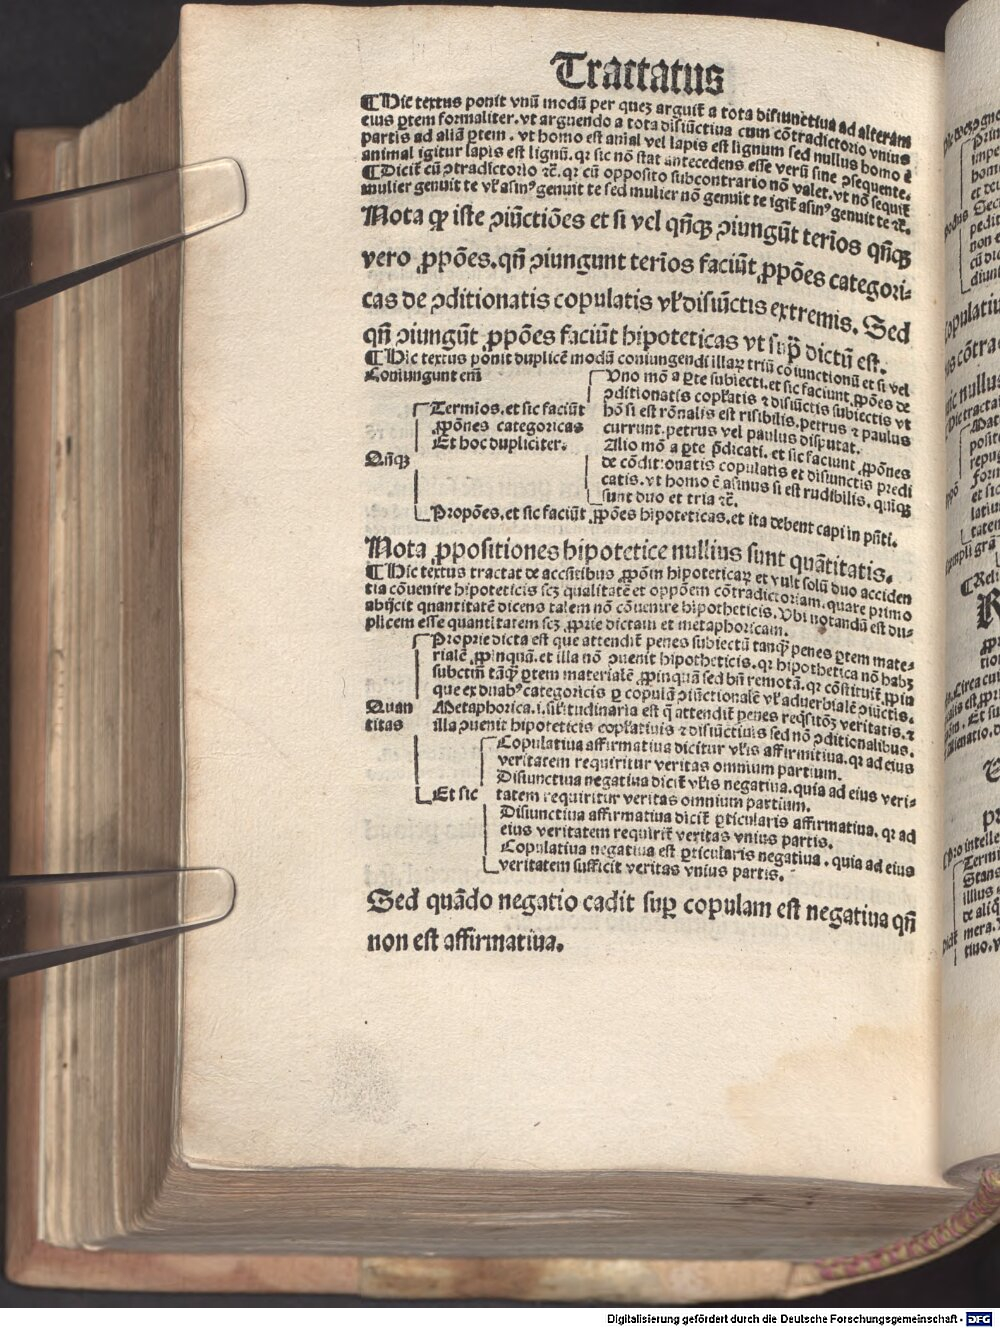 Tractatus
¶ Hic textus ponit vnū modū per quez arguit̄ a tota disiunctiua ad alteram
eius ꝑtem formaliter. vt arguendo a tota disiūctiua cum cōtradictorio vnius
partis ad aliā ꝑtem. vt homo est anīal vel lapis est lignum sed nullus homo ē
animal igitur lapis est lignū. qr sic nō stat antecedens esse verū sine ꝯsequente.
¶ Dicit̄ cū ꝯtradictorio ⁊c̄. qr cū opposito subcontrario nō valet. vt nō sequit̄
mulier genuit te vl̓ asinꝰ genuit te sed mulier nō genuit te igit̄ asinꝰ genuit te ⁊c̄.
Nota ꝙ iste ꝯiūctiōes et si vel qn̄qꝫ ꝯiungūt terīos qn̄qꝫ
vero ꝓpōes. qn̄ ꝯiungunt terīos faciūt ꝓpōes categori-
cas de ꝯditionatis copulatis vl̓ disiūctis extremis. Sed
qn̄ ꝯiungūt ꝓpōes faciūt hipoteticas vt sup̄ dictū est.
¶ Hic textus ponit duplicē modū coniungendi illaꝝ triū coiunctionū et si vel
Coniungunt em̄
Vno mō a ꝑte subiecti. et sic faciunt ꝓpōes de
ꝯditionatis copl̓atis ⁊ disiūctis subiectis vt
hō si est rōnalis est risibilis. petrus ⁊ paulus
currunt. petrus vel paulus disputat.
Termīos. et sic faciūt
ꝓpōnes categoricas
Et hoc dupliciter.
Alio mō a ꝑte p̄dicati. et sic faciunt ꝓpōnes
de cōditionatis copulatis et disiunctis predi
catis. vt homo ē asinus si est rudibilis. quiqꝫ
sunt duo et tria ⁊c̄.
Qn̄qꝫ
Propōes. et sic faciūt ꝓpōes hipoteticas. et ita debent capi in pn̄ti.
Nota ꝓpositiones hipotetice nullius sunt quātitatis.
¶ Hic textus tractat de accn̄tibus ꝓpōm hipoteticaꝝ et vult solū duo acciden
tia cōuenire hipoteticis scꝫ qualitatē et oppōem cōtradictoriam. quare primo
abijcit quantitatē dicens talem nō cōuenire hipotheticis. Vbi notandū est du-
plicem esse quantitatem scꝫ ꝓprie dictam et metaphoricam.
Proprie dicta est que attendit̄ penes subiectū tanqꝫ penes ꝑtem mate-
rialē ꝓpinquā. et illa nō ꝯuenit hipotheticis. qr hipothetica nō habꝫ
subctm̄ tāqꝫ ꝑtem materialē ꝓpinquā sed bn̄ remotā. qr cōstituit̄ ꝓpin
que ex duabꝰ categoricis ꝑ copulā ꝯiūctionalē vl̓ aduerbialē ꝯiūctis.
Quan
titas
Metaphorica. i. sil̓itudinaria est q̄ attendit̄ penes reqsitōꝫ veritatis. ⁊
illa ꝯuenit hipoteticis copl̓atiuis ⁊ disiūctiuis sed nō ꝯditionalibus.
Copulatiua affirmatiua dicitur vl̓is affirmitiua. qr ad eius
veritatem requiritur veritas omnium partium.
Disiunctiua negatiua dicit̄ vl̓is negatiua. quia ad eius veri-
tatem requiritur veritas omnium partium.
Et sic
Disiunctiua affirmatiua dicit̄ ꝑticularis affirmatiua. qr ad
eius veritatem requirit̄ veritas vnius partis.
Copulatiua negatiua est ꝑticularis negatiua. quia ad eius
veritatem sufficit veritas vnius partis.
Sed quādo negatio cadit suꝑ copulam est negatiua qn̄
non est affirmatiua.
Digitalisierung gefördert durch die Deutsche Forschungsgemeinschaft - DFG